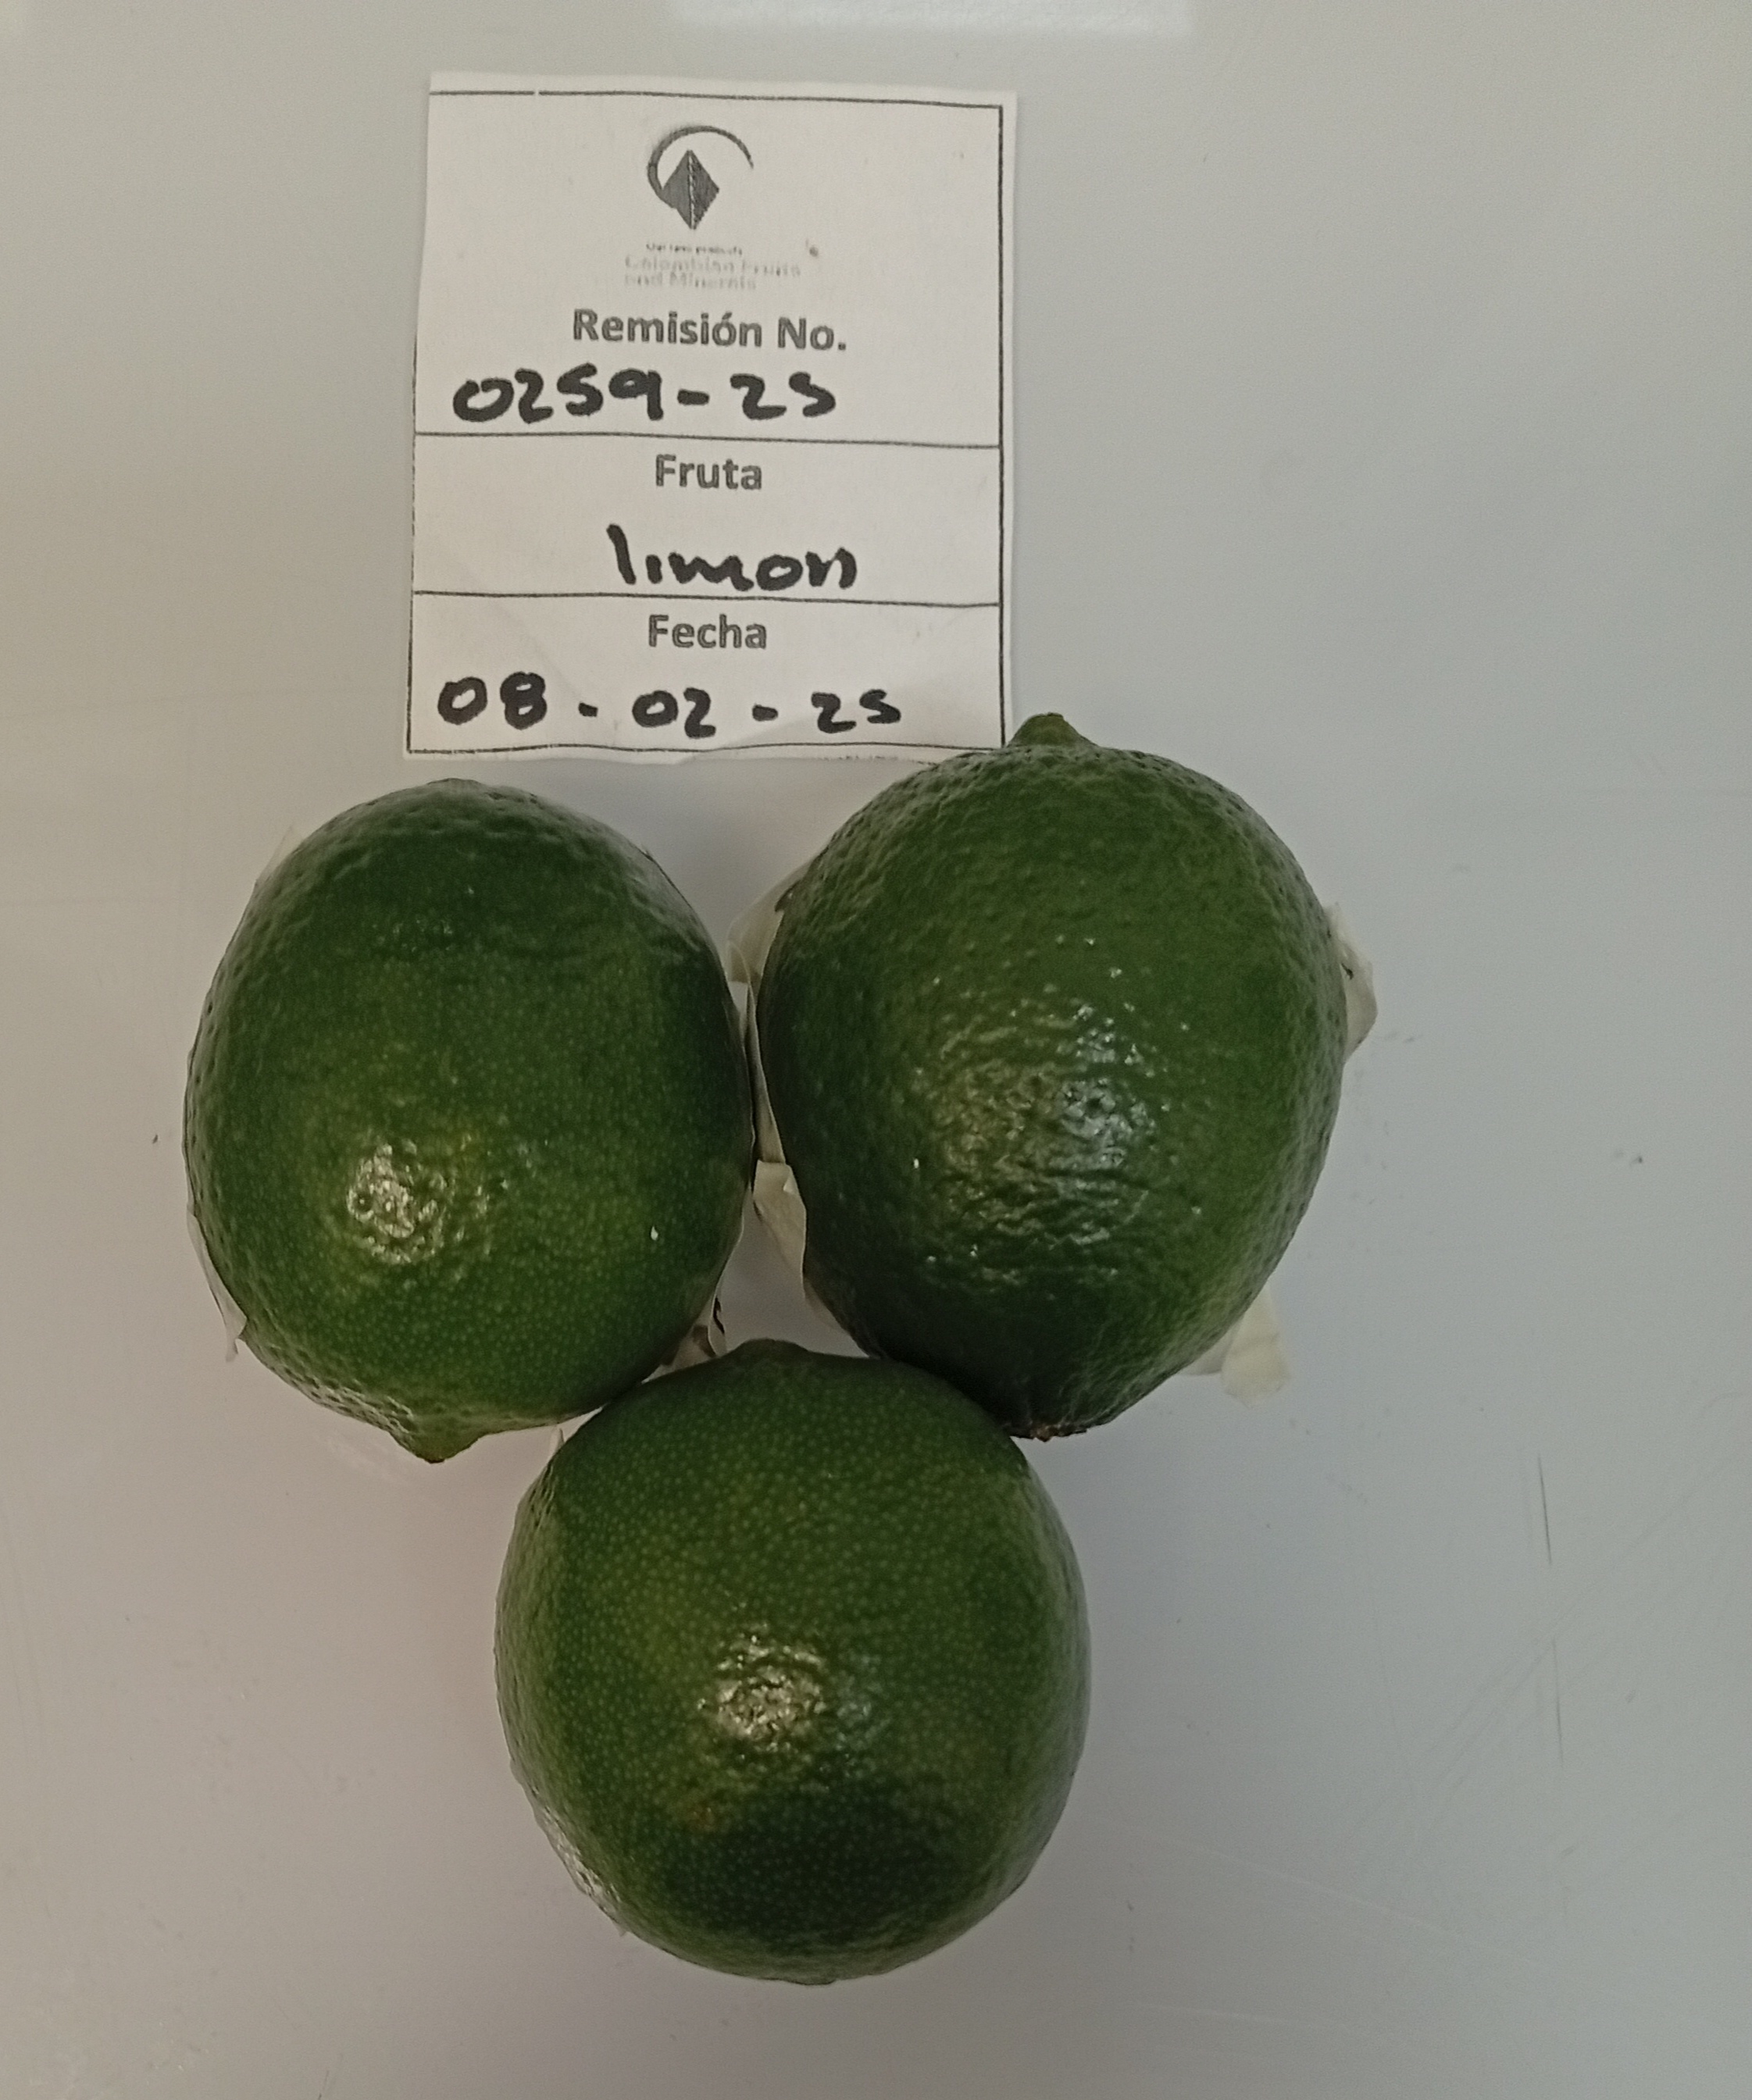 Colombian Fruits
and Minerals
Remisión No.
0259-25
Fruta
limon
Fecha
08-02-25